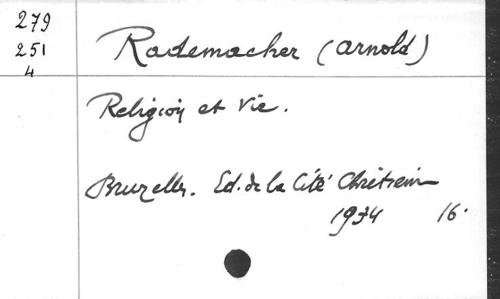 279
251
4
Rademacher (Arnold)
Religion et Vie.
Bruxelles. Ed. de la Cité Chrétienne
1934 16°